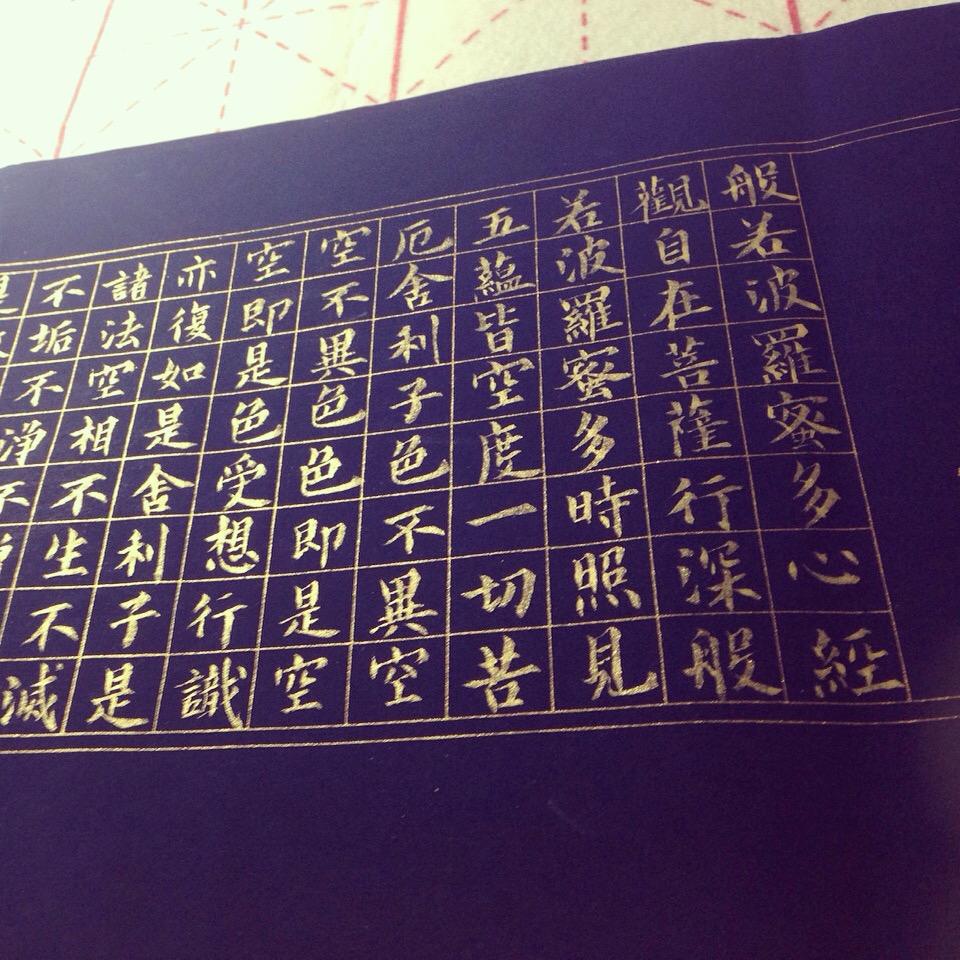 般若波羅蜜多心經
觀自在菩薩行深般
若波羅蜜多時照見
五蘊皆空度一切苦
厄舍利子色不異空
空不異色色即是空
空即是色受想行識
亦復如是舍利子是
諸法空相不生不滅
不垢不淨不